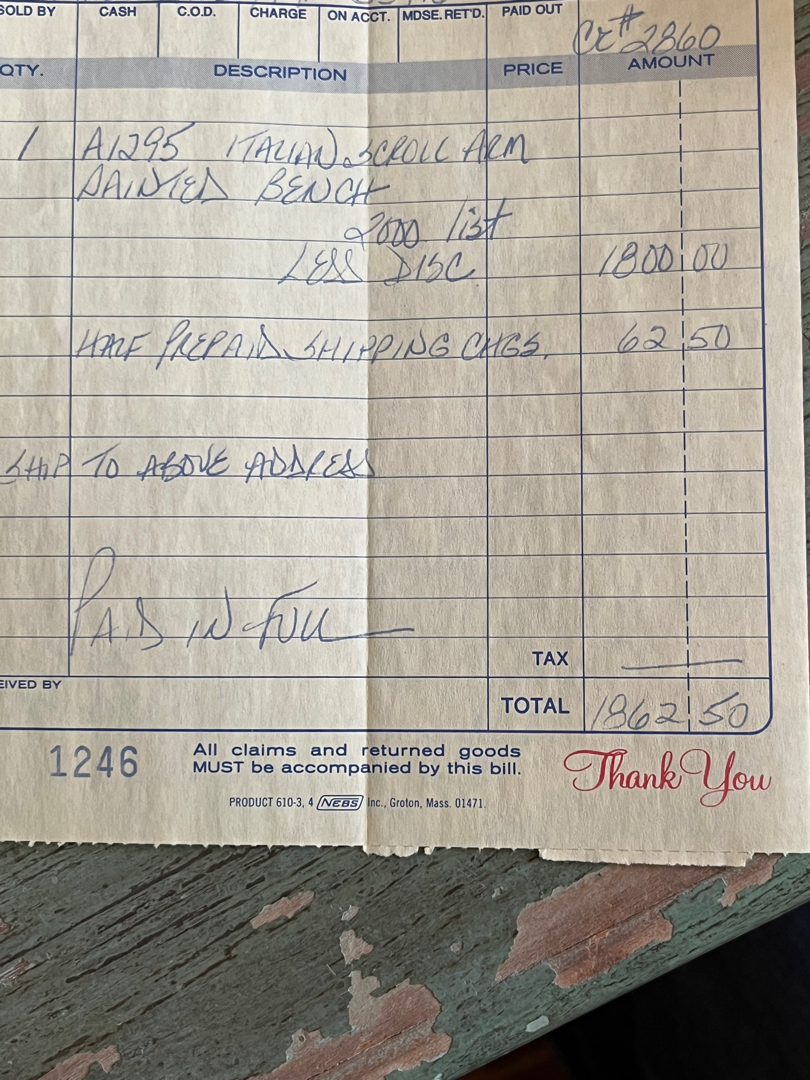 SOLD BY CASH C.O.D. CHARGE ON ACCT. MDSE. RET'D. PAID OUT
CK# 2860
QTY. DESCRIPTION PRICE AMOUNT
1 A1295 ITALIAN SCROLL ARM
PAINTED BENCH
2000 list
LESS DISC. 1800 00
HALF PREPAID SHIPPING CHGS. 62 50
SHIP TO ABOVE ADDRESS
PAID IN FULL
TAX —
EIVED BY
TOTAL 1862 50
1246
All claims and returned goods
MUST be accompanied by this bill.
Thank You
PRODUCT 610-3, 4 NEBS Inc., Groton, Mass. 01471.